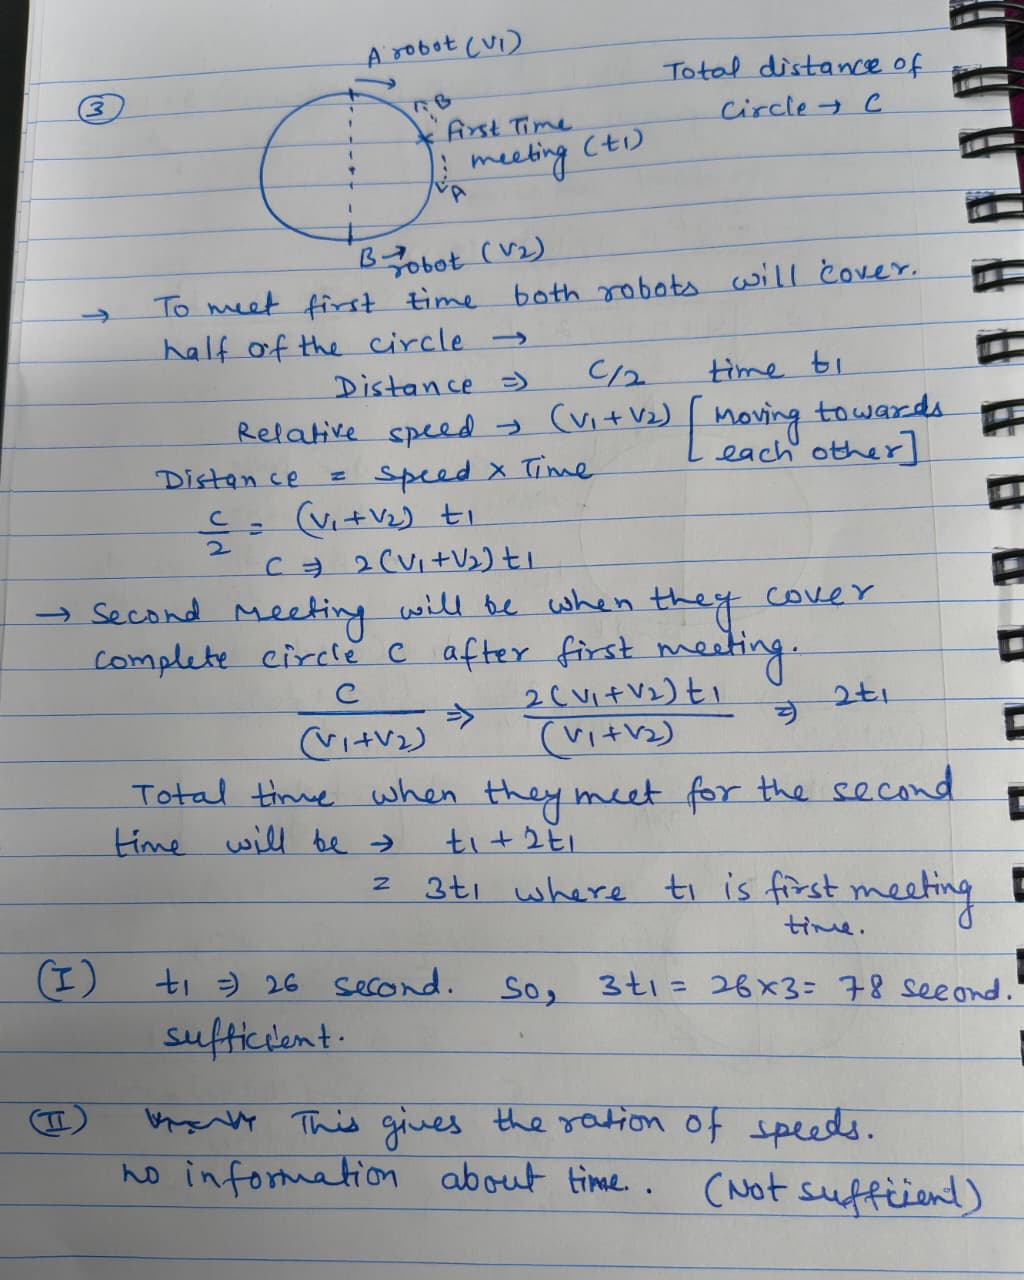 A robot (V1)
Total distance of
circle → C
3
B
first Time
meeting (t1)
A
B → robot (V2)
→ To meet first time both robots will cover.
half of the circle →
Distance ⇒ C/2 time t1
Relative speed → (V1+V2) [Moving towards
each other]
Distance = speed × Time
C/2 = (V1+V2) t1
C ⇒ 2(V1+V2) t1
→ Second Meeting will be when they cover
complete circle C after first meeting.
C/(V1+V2) ⇒ 2(V1+V2)t1/(V1+V2) ⇒ 2t1
Total time when they meet for the second
time will be → t1 + 2t1
= 3t1 where t1 is first meeting
time.
(I) t1 ⇒ 26 second. So, 3t1 = 26×3 = 78 second.
sufficient.
(II) This gives the ration of speeds.
no information about time.. (Not sufficient)